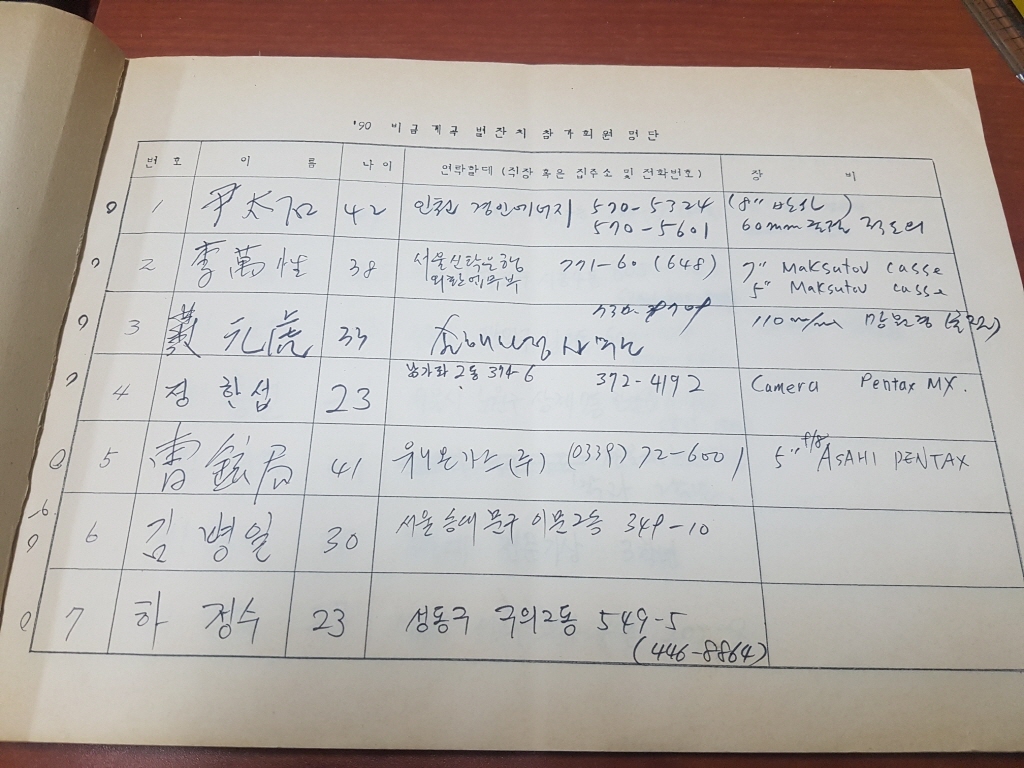 '90 비금계곡 별잔치 참가회원 명단
번호 이 름 나이 연락할데 (직장 혹은 집주소 및 전화번호) 장 비
1 尹太石 42 인천 경인에너지 570-5324 (8" 반사)
570-5601 60mm 굴절 적도의
2 李萬性 38 서울신탁은행 771-60 (648) 7" Maksutov casse
외환업무부 5" Maksutov casse
3 元虎 33 110m/m 망원경
4 정한섭 23 남가좌 2동 374-6 372-4192 Camera Pentax MX.
5 曺鉉 41 유니온가스(주) (0339) 72-6001 5" f/8 ASAHI PENTAX
6 김병일 30 서울 동대문구 이문2동 349-10
7 하정수 23 성동구 구의2동 549-5
(446-8864)